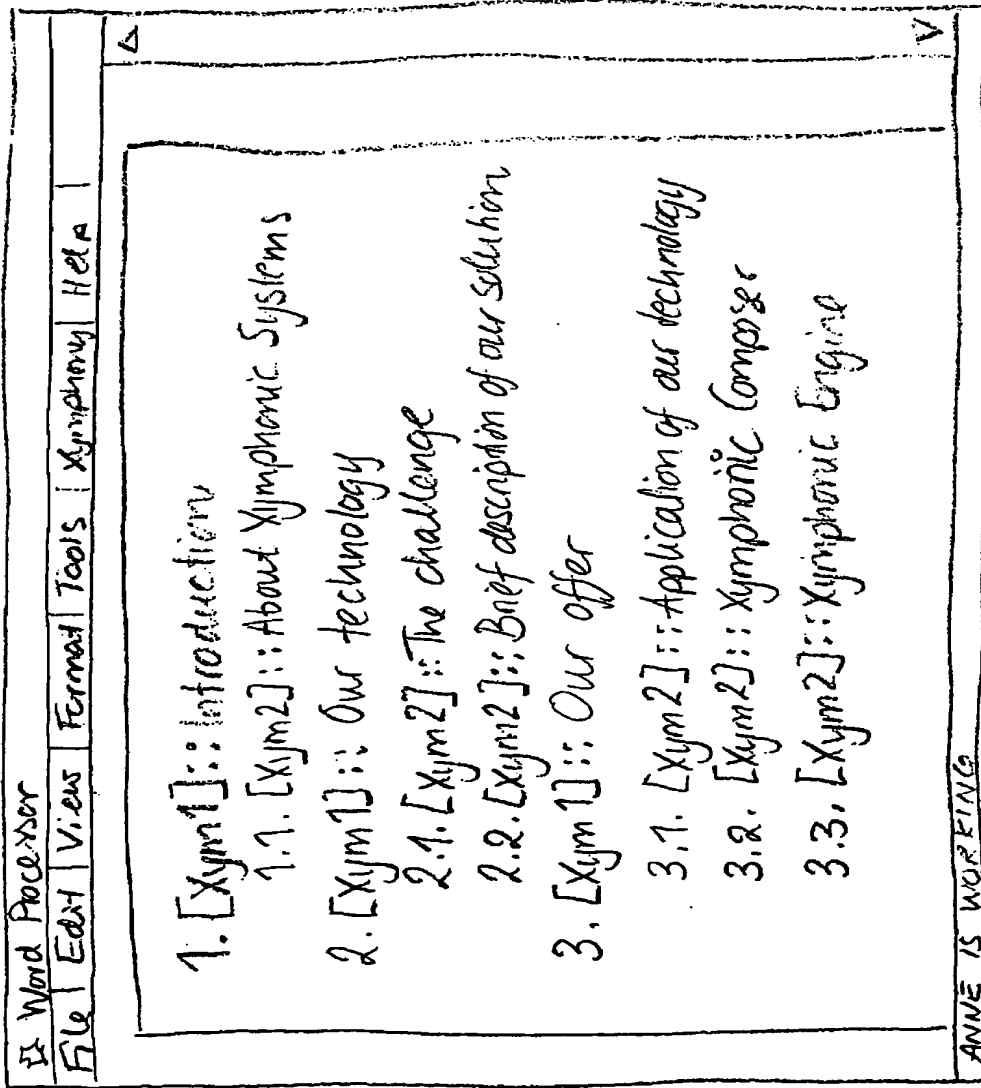 Word Processor
File | Edit | View | Format | Tools | Xymphony | Help |
1. [Xym1]:: Introduction
1.1. [Xym2]:: About Xymphonic Systems
2. [Xym1]:: Our technology
2.1. [Xym2]:: The challenge
2.2. [Xym2]:: Brief description of our solution
3. [Xym1]:: Our offer
3.1. [Xym2]:: Application of our technology
3.2. [Xym2]:: Xymphonic Composer
3.3. [Xym2]:: Xymphonic Engine
ANNE IS WORKING